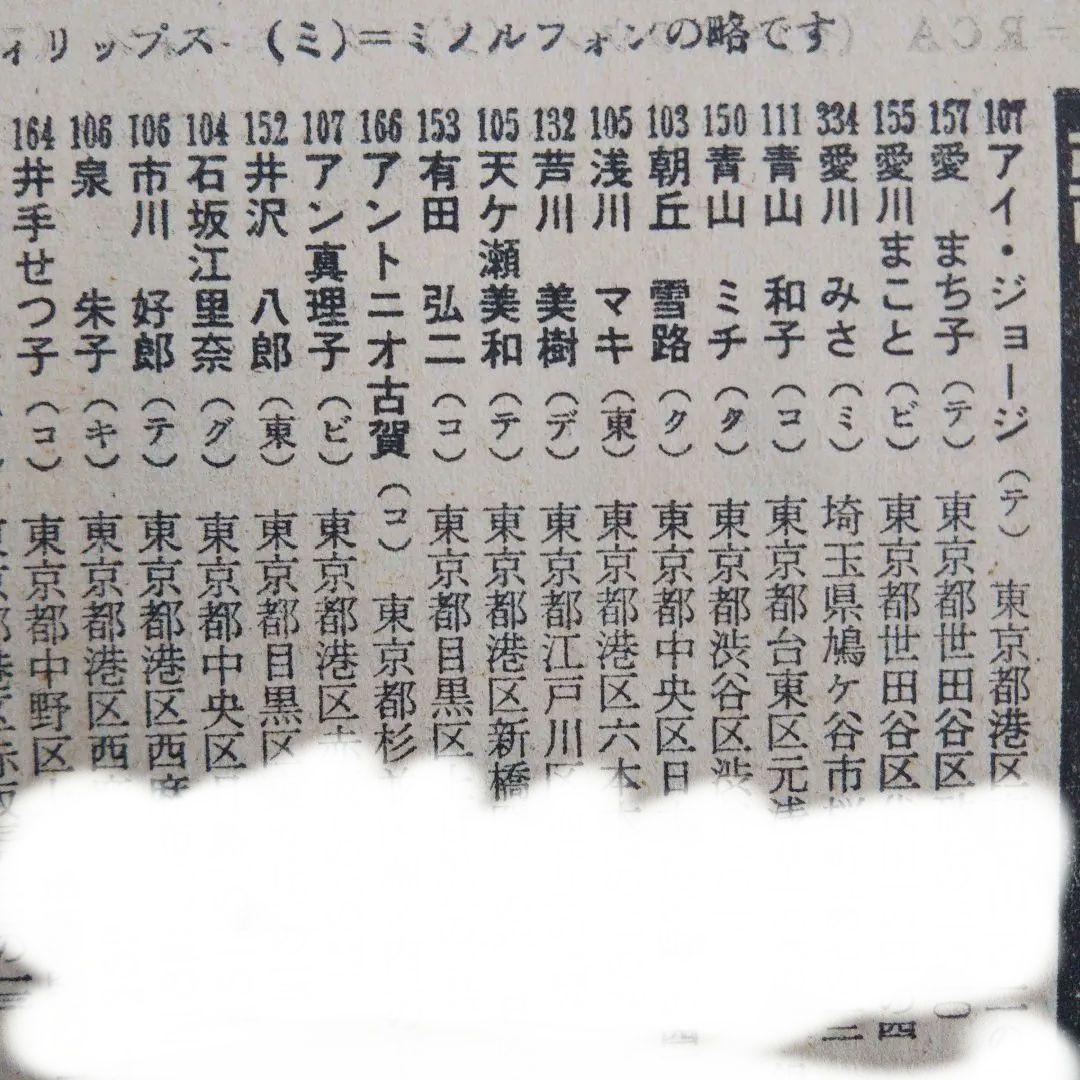 ィリップス (ミ)=ミノルフォンの略です
107 アイ・ジョージ(テ) 東京都港区
157 愛 まち子(テ) 東京都世田谷区
155 愛川まこと(ビ) 東京都世田谷区
334 愛川 みさ(ミ) 埼玉県鳩ケ谷市
111 青山 和子(コ) 東京都台東区元浅
150 青山 ミチ(タ) 東京都渋谷区渋
103 朝丘 雪路(ク) 東京都中央区日
105 浅川 マキ(東) 東京都港区六本
132 芦川 美樹(デ) 東京都江戸川区
105 天ケ瀬美和(テ) 東京都港区新橋
153 有田 弘二(コ) 東京都目黒区
166 アントニオ古賀(コ) 東京都杉
107 アン真理子(ビ) 東京都港区赤
152 井沢 八郎(東) 東京都目黒区
104 石坂江里奈(グ) 東京都中央区
106 市川 好郎(テ) 東京都港区西麻
106 泉 朱子(キ) 東京都港区西
164 井手せつ子(コ) 東京都中野区